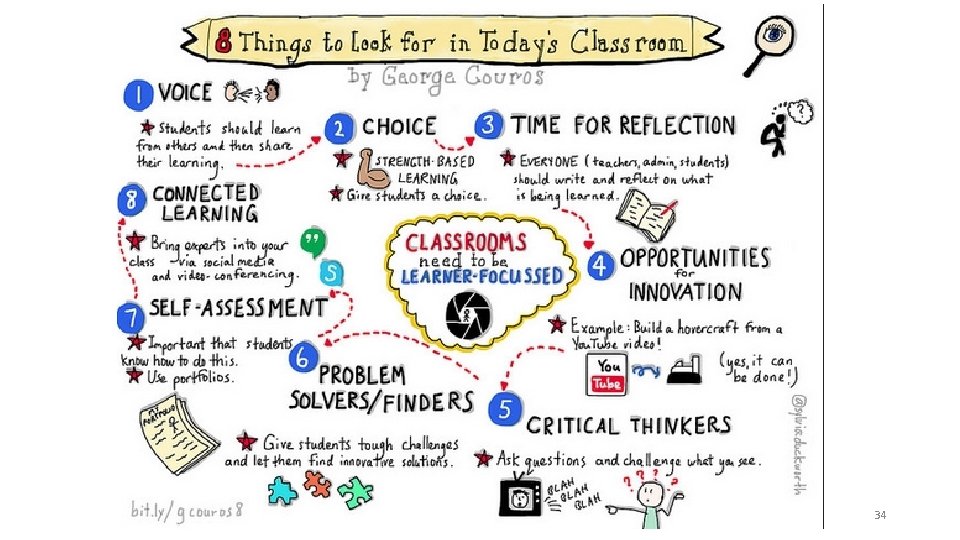 8 Things to Look for in Today's Classroom
by George Couros
1 VOICE
Students should learn
from others and then share
their learning.
2 CHOICE
STRENGTH-BASED
LEARNING
Give students a choice.
3 TIME FOR REFLECTION
EVERYONE (teachers, admin, students)
should write and reflect on what
is being learned.
?
CLASSROOMS
need to be
LEARNER-FOCUSSED
4 OPPORTUNITIES
for
INNOVATION
Example: Build a hovercraft from a
YouTube video!
You
Tube
(yes, it can
be done!)
5 CRITICAL THINKERS
Ask questions and challenge what you see.
BLAH
BLAH
BLAH
? ? ? ?
6 PROBLEM
SOLVERS/FINDERS
Give students tough challenges
and let them find innovative solutions.
7 SELF-ASSESSMENT
Important that students
know how to do this.
Use portfolios.
MY
PORTFOLIO
8 CONNECTED
LEARNING
Bring experts into your
class - via social media
and video-conferencing.
S
bit.ly/gcouros8
@sylviaduckworth
34